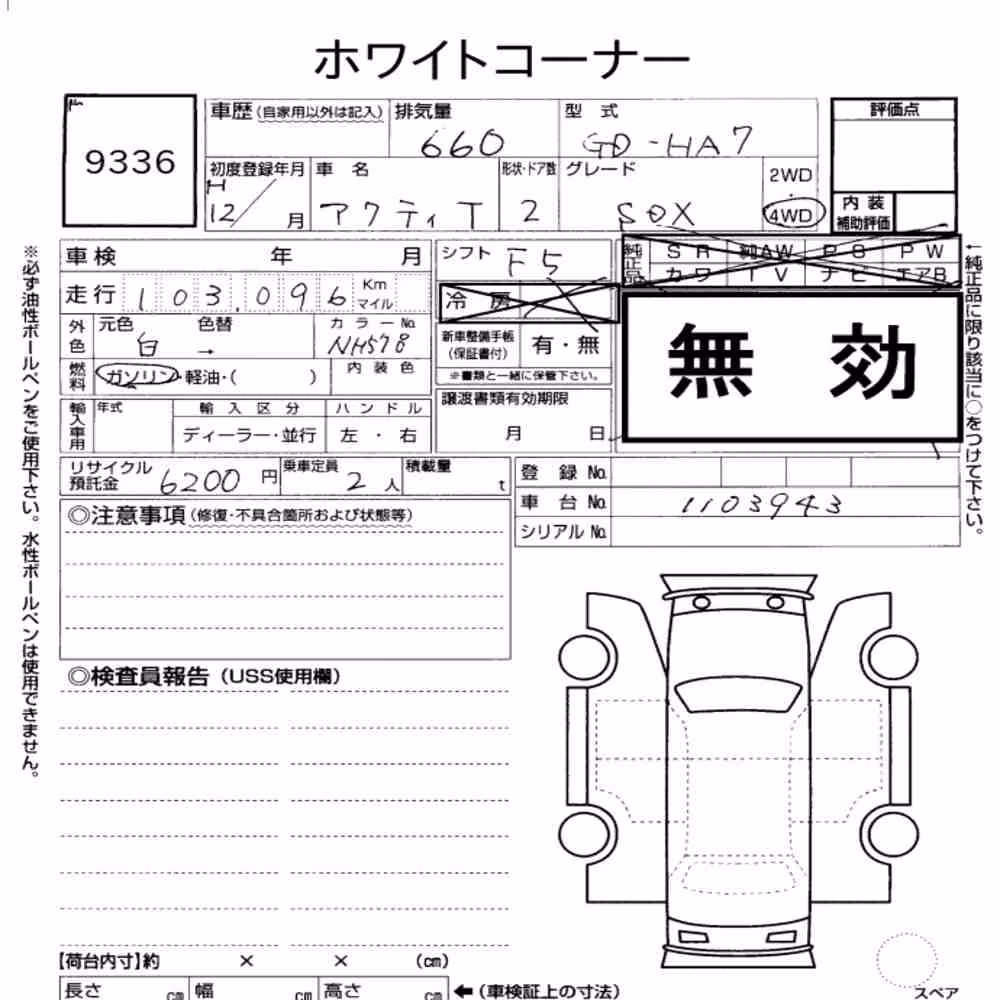 ホワイトコーナー
9336
車歴 (自家用以外は記入) 排気量 型式 評価点
660 GD-HA7
初度登録年月 車名 形状・ドア数 グレード 2WD
H12/ 月 アクティT 2 SDX 4WD
内装
補助評価
車検 年 月 シフト F5
純正品 SR 純AW PS PW
カワ TV ナビ エアB
走行 103,096 Km
マイル
冷房
外色 元色 色替 カラーNo.
白 → NH578
新車整備手帳
(保証書付) 有・無
※書類と一緒に保管下さい。
燃料 ガソリン・軽油・( ) 内装色
無効
輸入車用 年式 輸入区分 ハンドル
ディーラー・並行 左・右
譲渡書類有効期限
月 日
※必ず油性ボールペンをご使用下さい。水性ボールペンは使用できません。
←純正品に限り該当に○をつけて下さい。
リサイクル
預託金 6200円 乗車定員 2人 積載量 t
登録No.
車台No. 1103943
シリアルNo.
◎注意事項 (修復・不具合箇所および状態等)
◎検査員報告 (USS使用欄)
【荷台内寸】約 × × (cm)
長さ cm 幅 cm 高さ cm ←(車検証上の寸法)
スペア